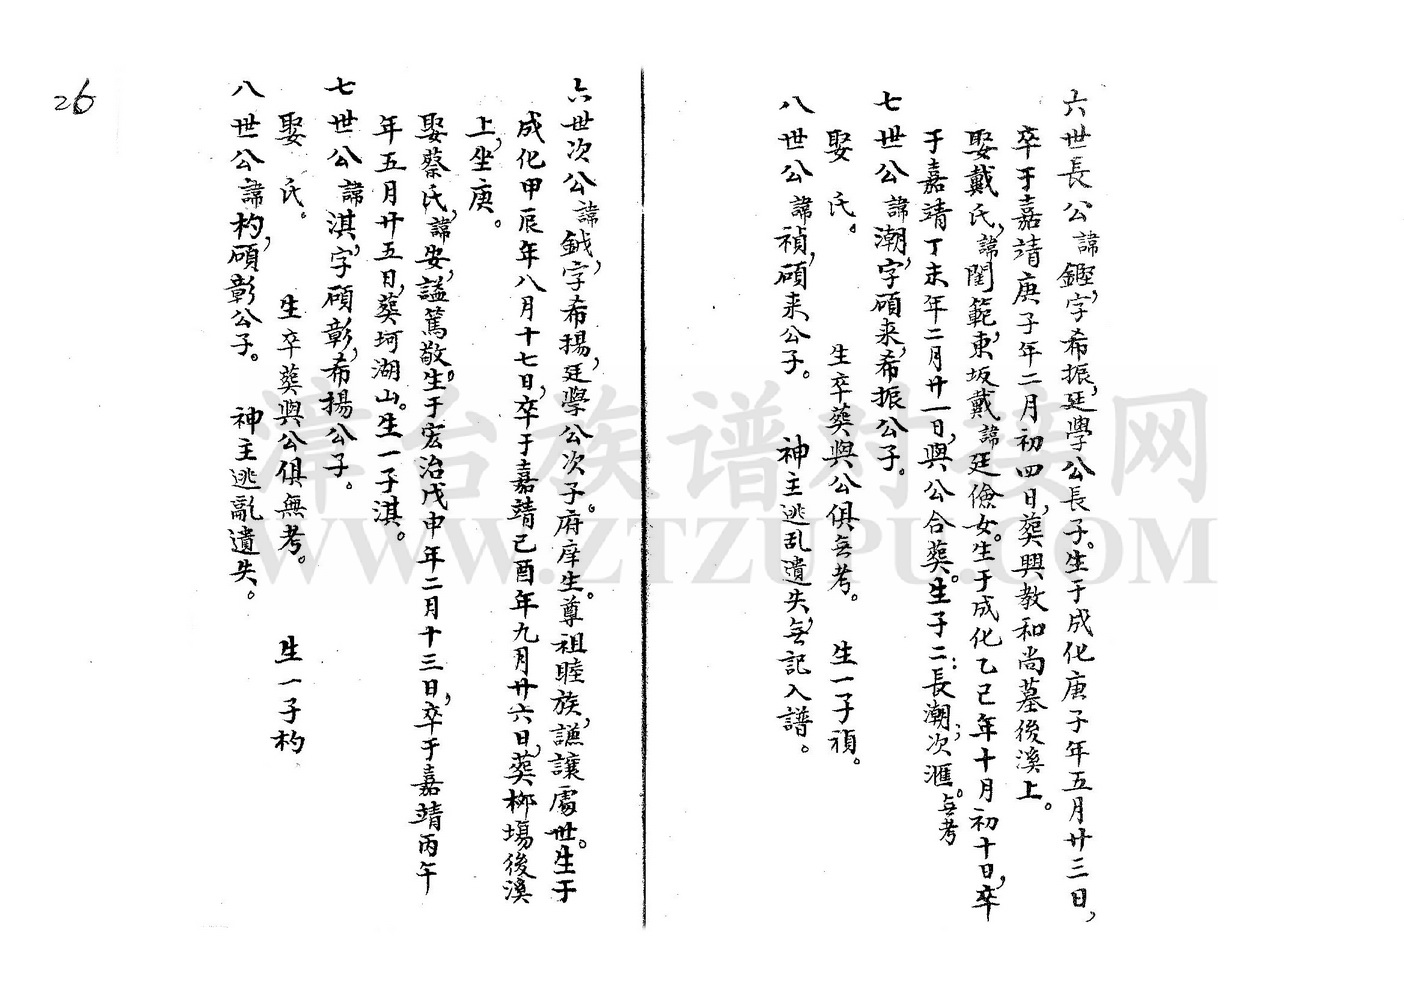 六世長公諱鏗,字希振,廷學公長子。生于成化庚子年五月廿三日,
卒于嘉靖庚子年二月初四日,葬興教和尚墓後溪上。
娶戴氏,諱閨範,東坂戴諱廷儉女。生于成化乙己年十月初十日,卒
于嘉靖丁未年二月廿一日,與公合葬。生子二:長潮;次滙。無考
七世公諱潮,字碩来,希振公子。
娶 氏。 生卒葬與公俱無考。 生一子禎。
八世公諱禎,碩来公子。 神主逃乱遺失,無記入譜。
六世次公諱鉞,字希揚,廷學公次子。府庠生。尊祖睦族,謙讓處世。生于
成化甲辰年八月十七日,卒于嘉靖己酉年九月廿六日,葬柳塲後溪
上,坐庚。
娶蔡氏,諱安,謚篤敬。生于宏治戊申年二月十三日,卒于嘉靖丙午
年五月廿五日,葬坷湖山。生一子淇。
七世公諱淇,字碩彰,希揚公子。
娶 氏。 生卒葬與公俱無考。 生一子杓
八世公諱杓,碩彰公子。 神主逃亂遺失。
26
漳台族谱对接网
WWW.ZTZUPU.COM